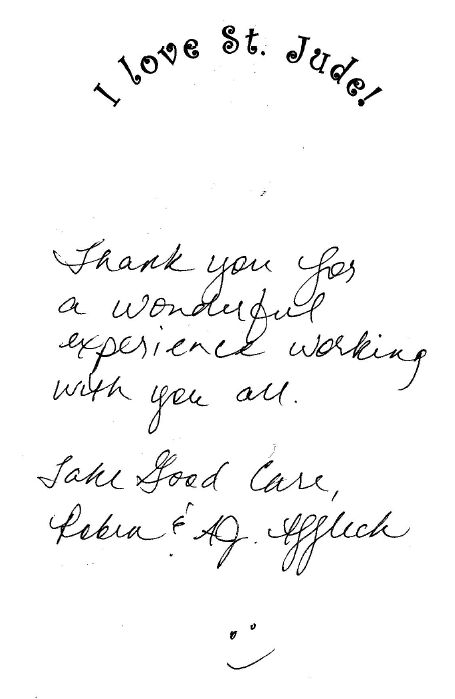 I love St. Jude!
Thank you for
a wonderful
experience working
with you all.
Take Good Care,
Robin & AJ. Affleck